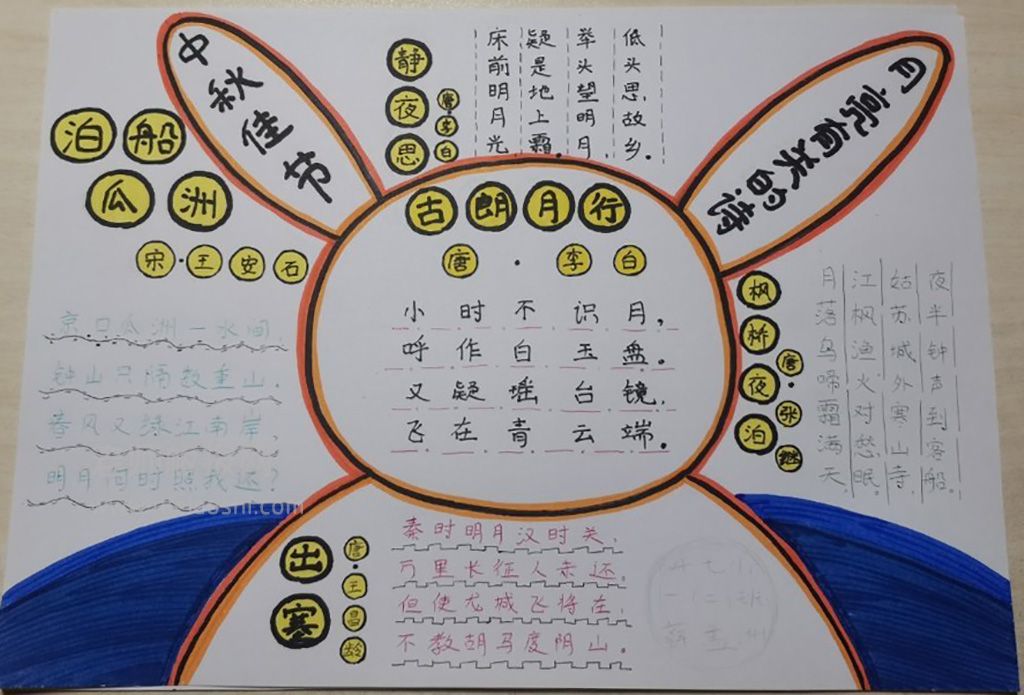 中秋佳节
月亮有关的诗
泊船
瓜洲
宋·王安石
京口瓜洲一水间,
钟山只隔数重山.
春风又绿江南岸,
明月何时照我还?
静夜思
唐·李白
床前明月光
疑是地上霜。
举头望明月,
低头思故乡。
古朗月行
唐·李白
小时不识月,
呼作白玉盘。
又疑瑶台镜,
飞在青云端。
枫桥夜泊
唐·张继
月落乌啼霜满天,
江枫渔火对愁眠。
姑苏城外寒山寺,
夜半钟声到客船。
出寒
唐·王昌龄
秦时明月汉时关,
万里长征人未还。
但使龙城飞将在,
不教胡马度阴山。